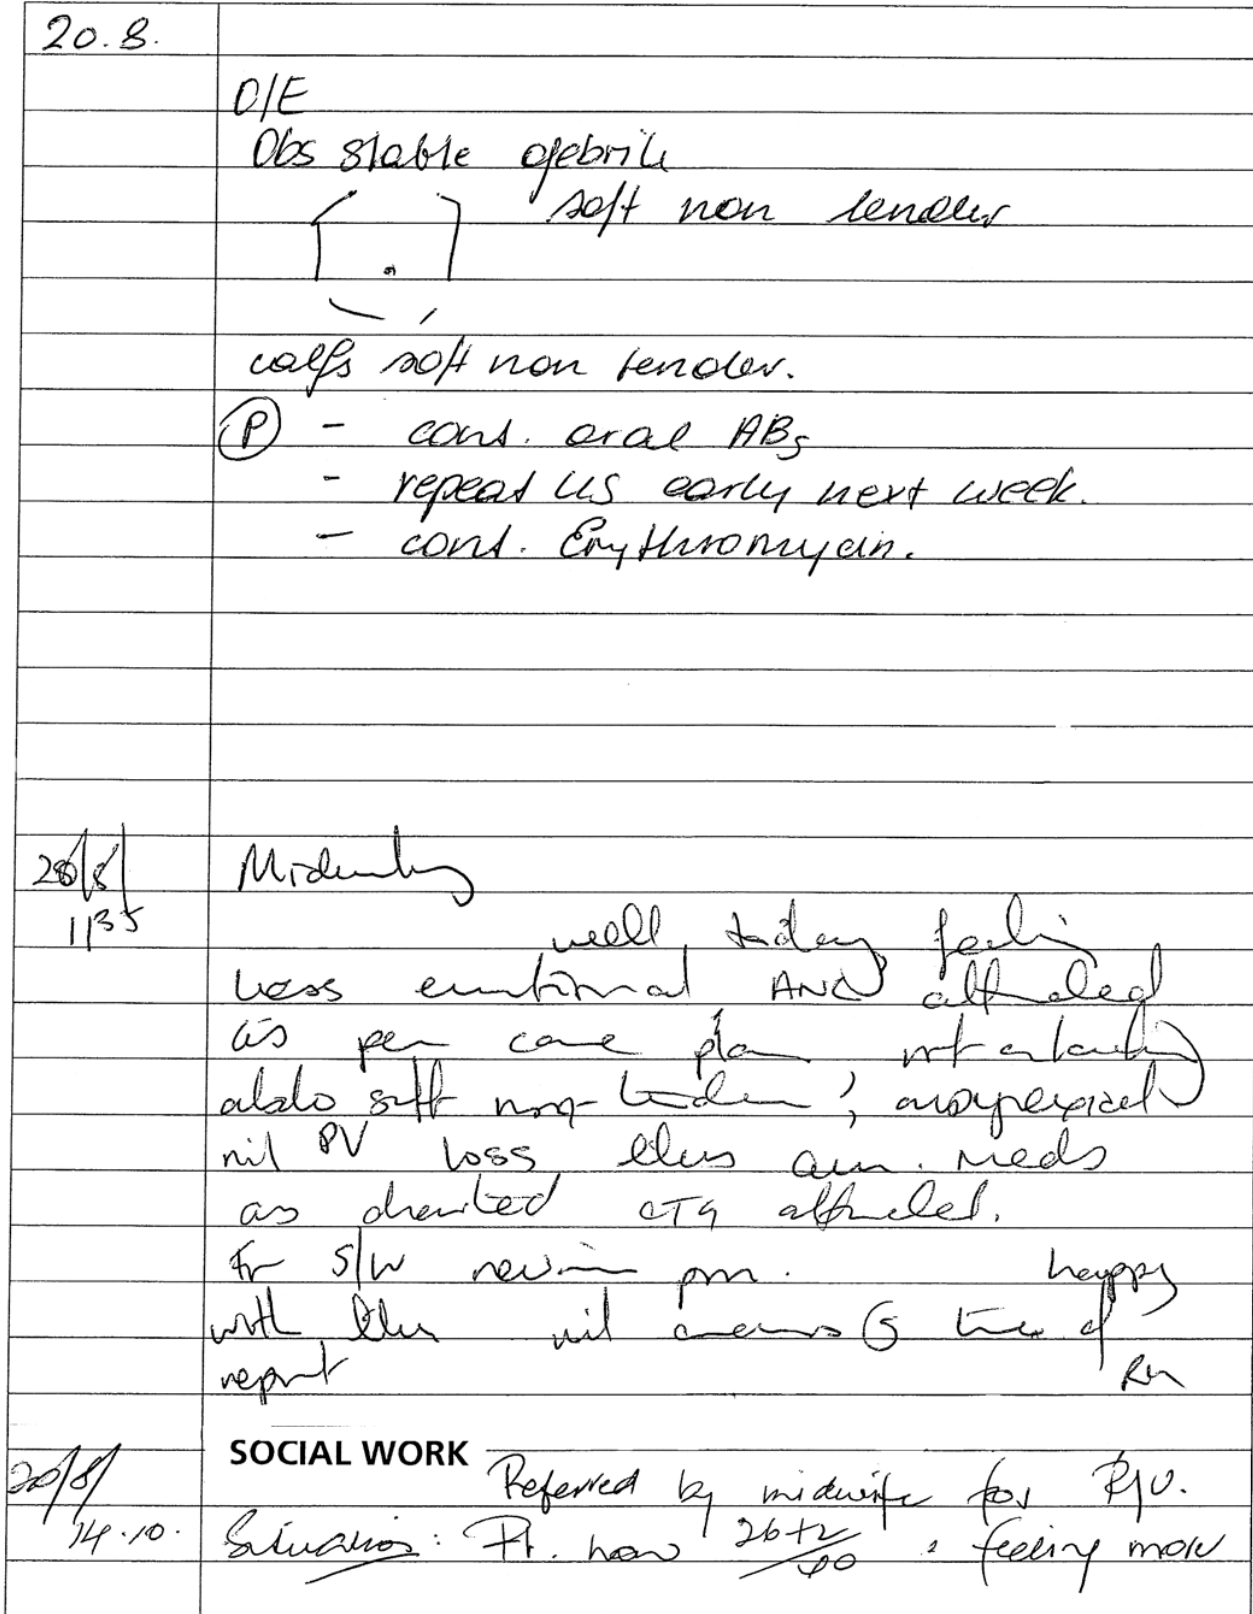 20.8.
O/E
Obs stable afebrile
soft non tender
calfs soft non tender.
P - cont. oral ABs
- repeat US early next week.
- cont. Erythromycin.
20/8/ Midwifery
1135
well, today feeling
less emotional ANC attended
as per care plan
abdo soft non-tender,
nil PV loss, meds
as charted CTG attended.
For S/W review pm. happy
with nil concerns @ time of
report RM
SOCIAL WORK
20/8/ Referred by midwife for R/V.
14.10. Situation: Pt. now 26+2/40, feeling more